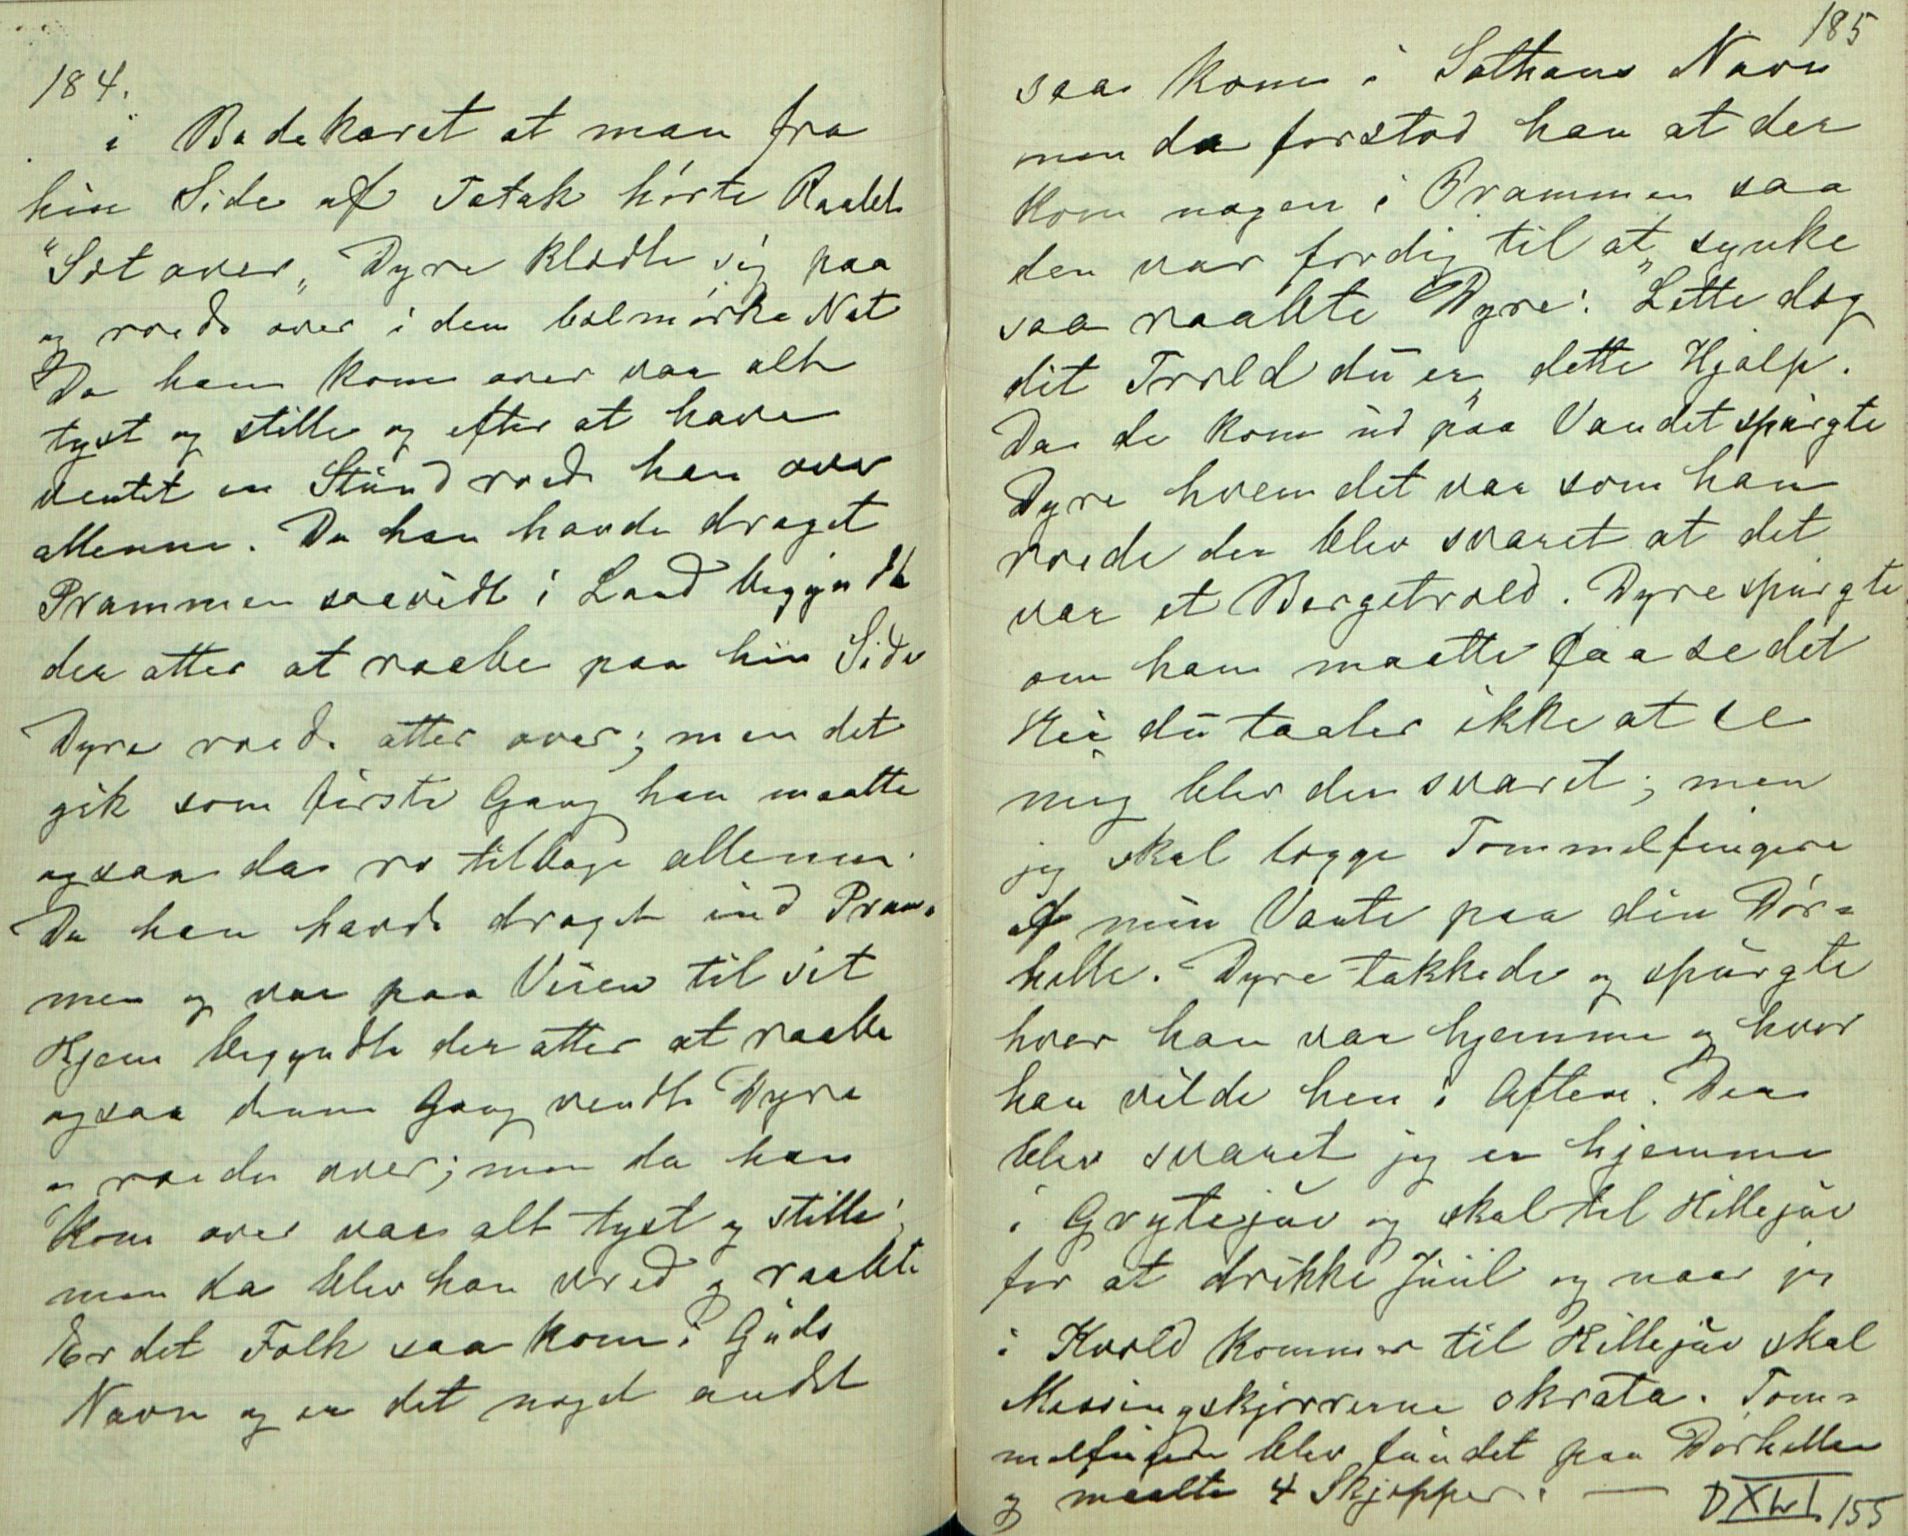 184.
i Badekaret at man fra
hin Side af Totak hørte Raabet
"Sæt over„ Dyre klædte sig paa
og roede over i den bælmørke Nat
Da han kom over var alt
tyst og stille og efter at have
ventet en Stund roede han over
allenne. Da han havde draget
Prammen saavidt i Land begyndte
der atter at raabe paa hin Side
Dyre roede atter over; men det
gik som første Gang han maatte
ogsaa da ro tilbage allenne.
Da han havde draget ind Pram-
men og var paa Veien til sit
Hjem begyndte der atter at raabe
ogsaa denne Gang vendte Dyre
og roede over; men da han
kom over var alt tyst og stille;
men da blev han vred og raabte
Er det Folk saa kom i Guds
Navn og er det noget andet
185
saa kom i Sathans Navn
men da forstod han at der
kom nogen i Prammen saa
den var færdig til at synke
saa raabte Dyre: "Lette dog
dit Trold du er„ dette Hjalp.
Da de kom ud paa Vandet spurgte
Dyre hvem det var som han
roede der blev svaret at det
var et Bergetrold. Dyre spurgte
om han maatte faa se det
Nei du taaler ikke at se
mig blev der svaret; men
jeg skal lægge Tommelfingere
af min Vante paa din Dør=
helle. Dyre takkede og spurgte
hvor han var hjemme og hvor
han vilde hen i Aften. Der
blev svaret jeg er hjemme
i Grytejuv og skal til Hillejuv
for at drikke Juul og naar jeg
i Kvæld kommer til Hillejuv skal
Messingskjørrerne skrata. Tom=
melfingere blev fundet paa Dørhellen
og maalte 4 Skjepper. —
155